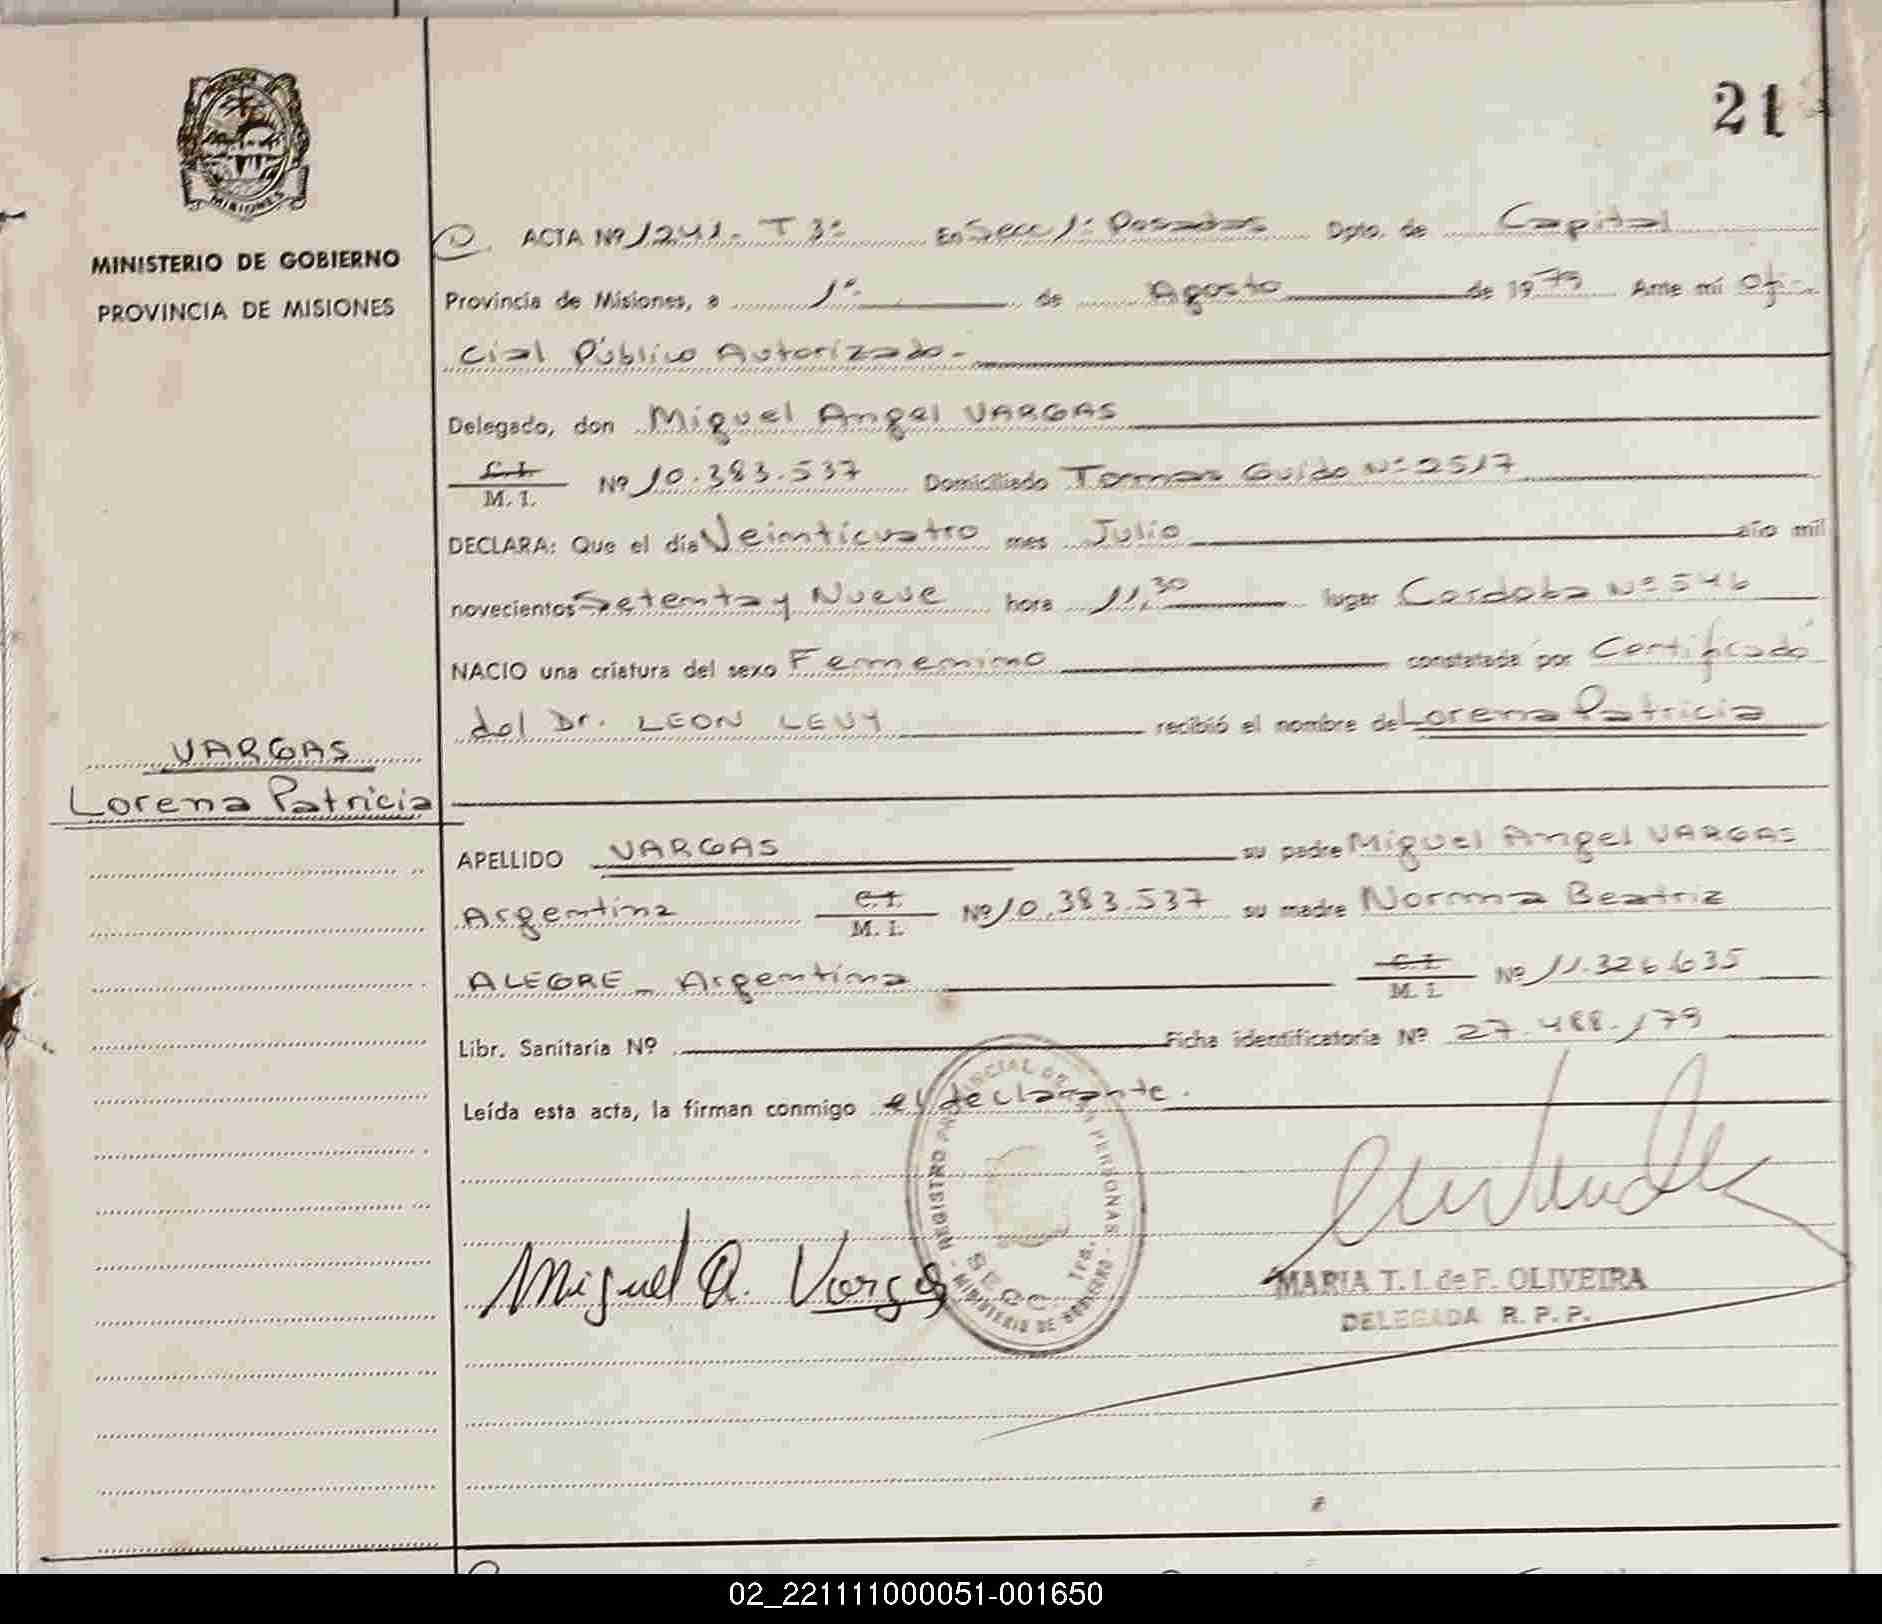 21
MISIONES
MINISTERIO DE GOBIERNO
PROVINCIA DE MISIONES
ACTA Nº 1241- T 3º En Secc 1º Posadas Dpto. de Capital
Provincia de Misiones, a 1º de Agosto de 1979 Ante mí Ofi-
cial Público Autorizado-
Delegado, don Miguel Angel VARGAS
C.I.
M. I. Nº 10.383.537 Domiciliado Tomas Guido Nº 2517
DECLARA: Que el día Veinticuatro mes Julio año mil
novecientos Setenta y Nueve hora 11,30 lugar Cordoba Nº 546
NACIO una criatura del sexo Femenino constatada por Certificado
del Dr. LEON LEVY recibió el nombre de Lorena Patricia
VARGAS
Lorena Patricia
APELLIDO VARGAS su padre Miguel Angel VARGAS
Argentina C.I.
M. I. Nº 10.383.537 su madre Norma Beatriz
ALEGRE - Argentina C.I.
M. I. Nº 11.326.635
Libr. Sanitaria Nº Ficha identificatoria Nº 27.488.179
Leída esta acta, la firman conmigo el declarante.
REGISTRO PROVINCIAL DE LAS PERSONAS
SECC. 1ra.
- MINISTERIO DE GOBIERNO -
Miguel A. Vargas
MARIA T. I. de F. OLIVEIRA
DELEGADA R. P. P.
02_221111000051-001650